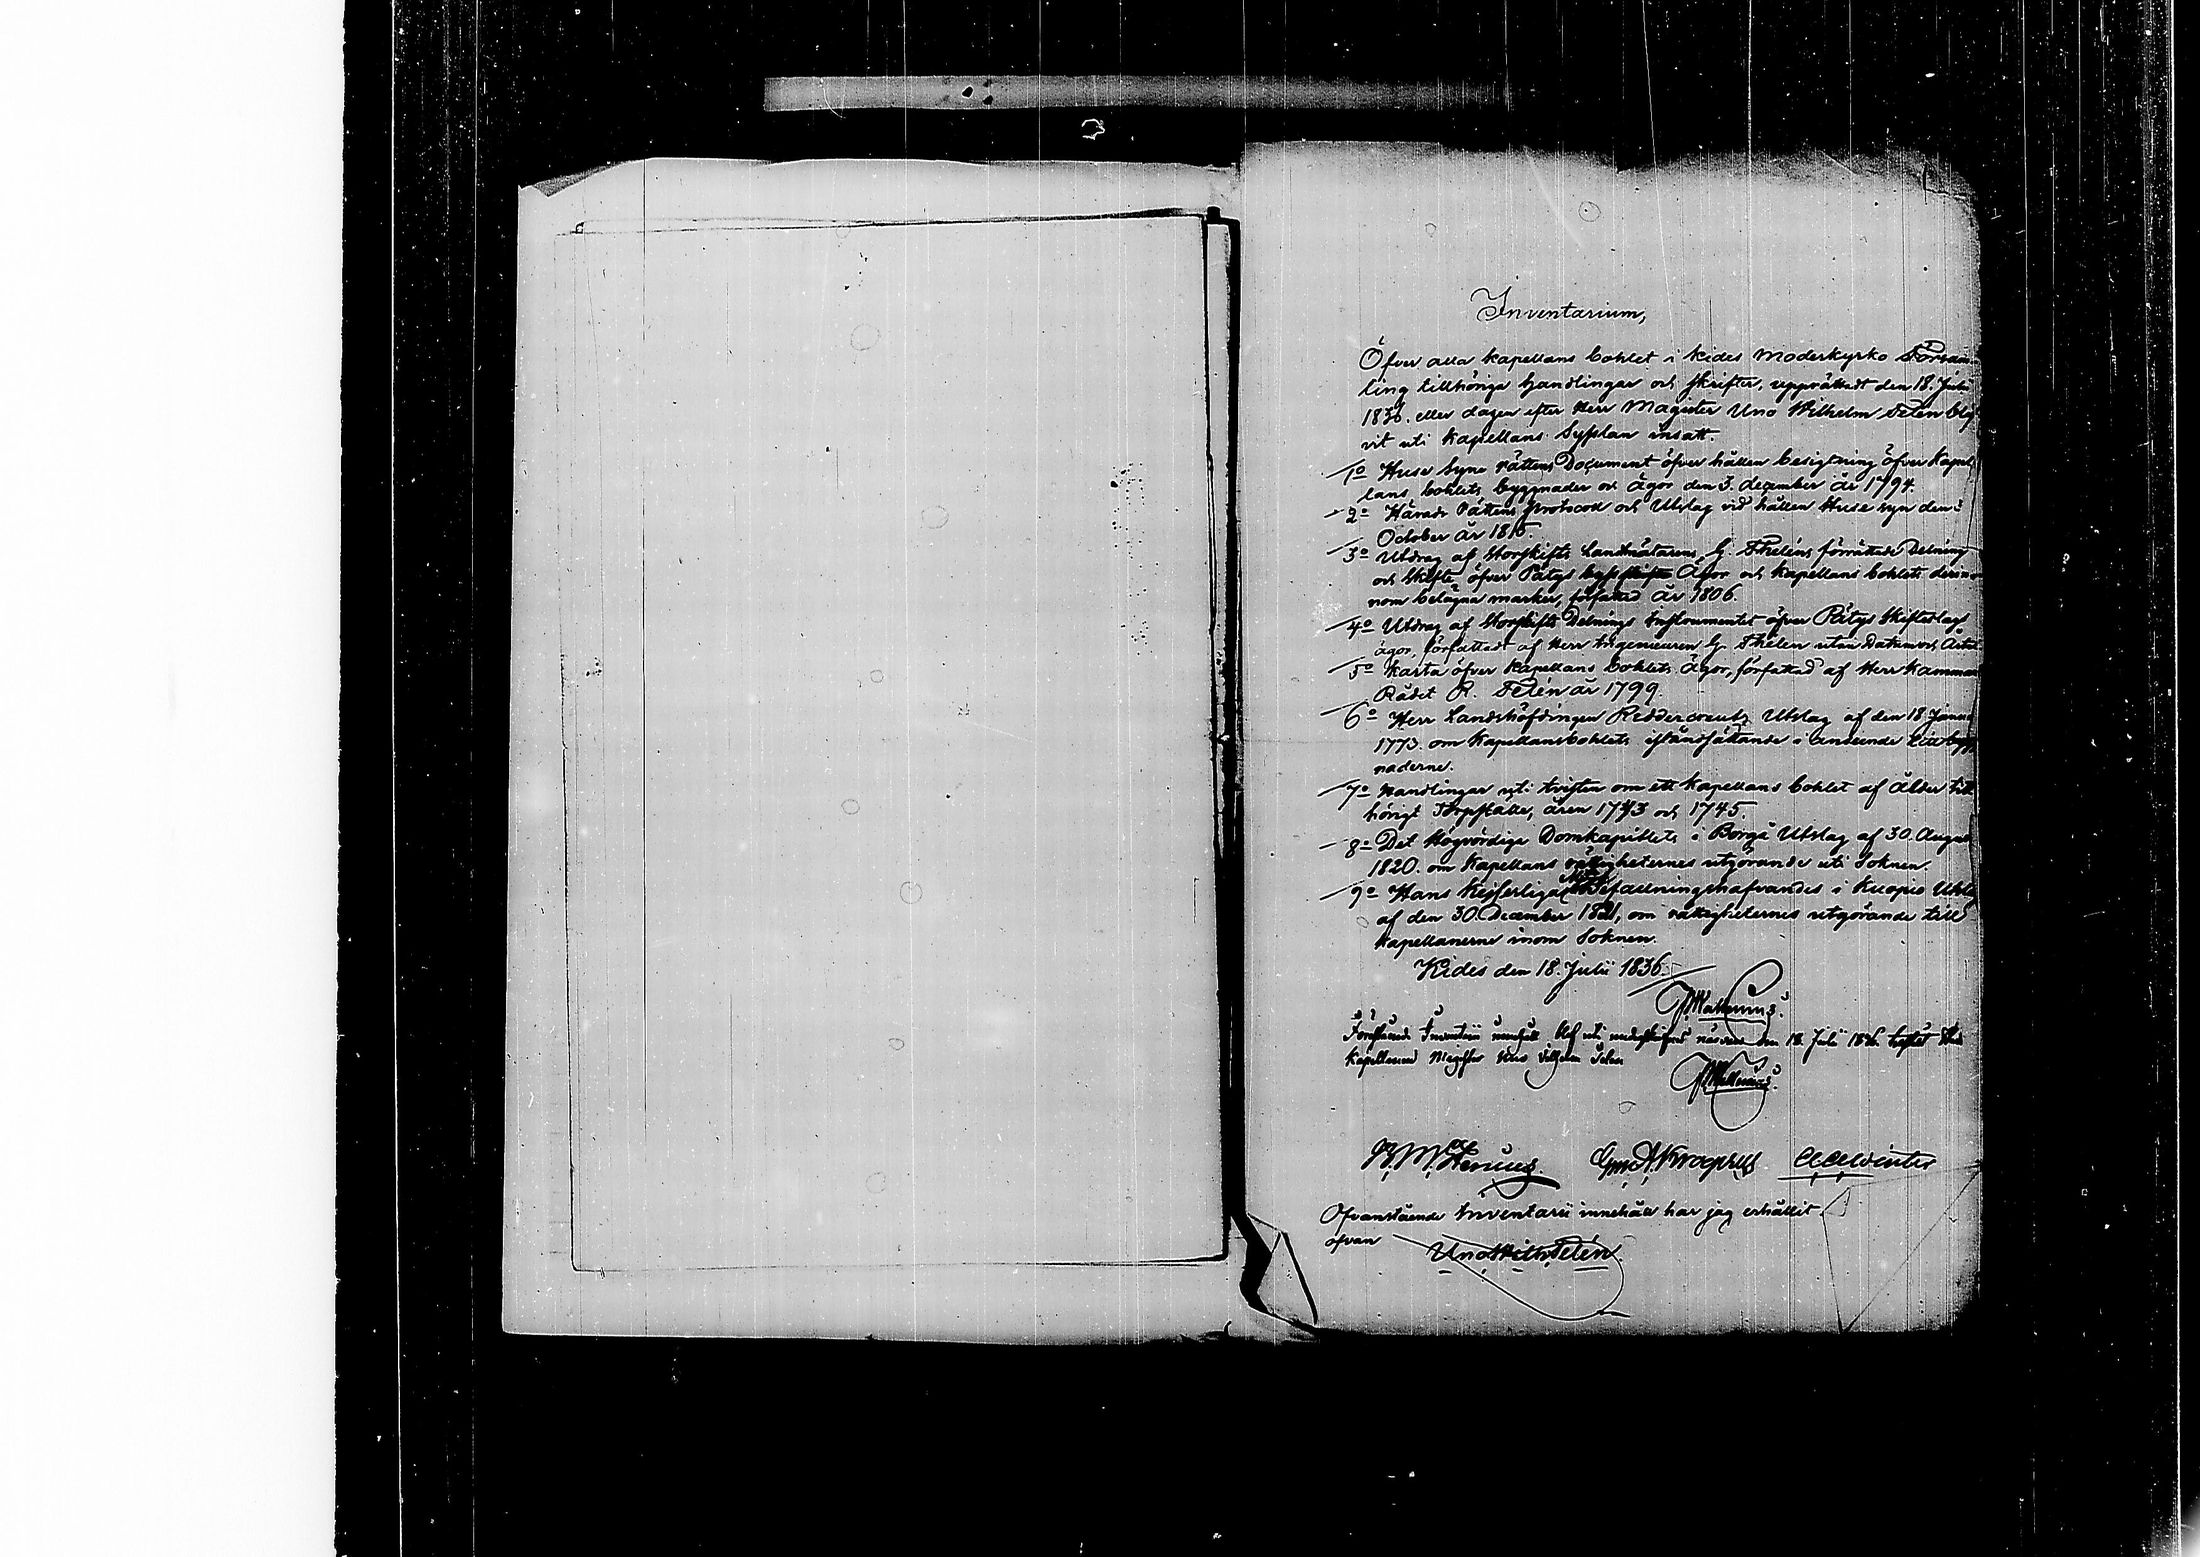 Inventarium,
Öfver alla kapellans bohlet i Kides Moderkyrko Försam-
ling tillhöriga Handlingar och skrifter, upprättadt den 18. Julii
1836. eller dagen efter Herr Magister Uno Wilhelm Telén blif
vit uti Kapellans Sysslan insatt.
1o Huse Syne Rättens Document öfver hållen besigtning öfver Kapel
lans bohlets byggnader och ägor den 3. december år 1794.
2o Härads Rättens Protocoll och Utslag vid hållen Huse syn den
October år 1815.
3o Utdrag af Storskifts Landtmätarens G. Theléns förrättade Delning
och Skifte öfver Pätys Ägor och Kapellans bohlets deri-
nom belägna marker, författad år 1806.
4o Utdrag af Storskifts Delnings Instrumentet öfver Pätys Skifteslags
ägor, författadt af Herr Ingenieuren G. Thelén utan Datum och Årtal
5o Karta öfver Kapellans bohlets ägor, författad af Herr Kammar
Rådet R. Telén år 1799.
6o Herr Landshöfdingen Riddercreutz Utslag af den 18 Janu
1773. om Kapellansbohlets iståndsättande i anseende till bygg
naderne.
7o Handlingar uti tvisten om ett Kapellans bohlet af ålder till
hörigt Torpställe, åren 1743 och 1745.
8o Det Högvördiga Domkapitlets i Borgå Utslag af 30. Augusti
1820. om Kapellans rättigheternes utgörande uti Soknen.
9o Hans Kejserliga Befallningshafvandes i Kuopio Utslag
af den 30 December 1821, om rättigheternes utgörande till
Kapellanerne inom Soknen.
Kides den 18. Julii 1836.
Förestående Inventarii innehåll blef uti undertecknads närvaro den 18. Julii 1836.
Kapellanen Magister Uno Vilhelm Telén
Ofvanstående Inventarii innehåll har jag erhållit
ofvan
Uno Wilh. Telén.